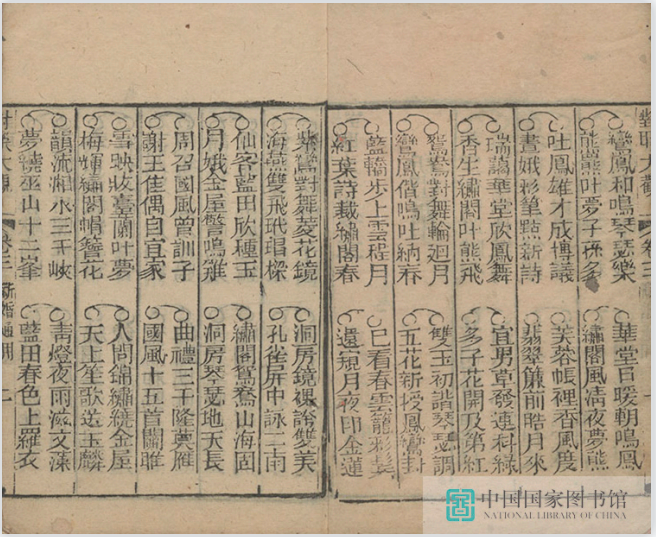 對聯大觀 卷二
鸞鳳和鳴琴瑟樂 華堂日暖朝鳴鳳
熊羆叶夢子孫多 繡閣風清夜夢熊
吐鳳雄才成博議 芙蓉帳裡香風度
畫娥彩筆點新詩 翡翠簾前皓月來
瑞藹華堂欣鳳舞 宜男草發連科綠
香生繡閣叶熊飛 多子花開及第紅
鴛鴦對舞輪迴月 雙玉初諧琴瑟調
鸞鳳偕鳴吐納春 五花新授鳳鸞封
藍橋步上雲程月 已看春雲龍彩
紅葉詩裁繡閣春 還窺月夜印金蓮
紫鸞對舞菱花鏡 洞房鏡裡諧雙美
海燕雙飛玳瑁樑 孔雀屏中詠二南
仙客藍田欣種玉 繡閣鴛鴦山海固
月娥金屋警鳴雞 洞房琴瑟地天長
周召國風曾訓子 曲禮三千隆奠雁
謝王佳偶自宜家 國風十五首關雎
雪映妝臺蘭叶夢 人間錦繡繞金屋
梅輝繡閣絹簪花 天上笙歌送玉麟
韻流湘水三千峽 青燈夜雨滋文藻
夢繞巫山十二峯 藍田春色上羅衣
對聯大觀 卷二 新婚通用 二
中国国家图书馆
NATIONAL LIBRARY OF CHINA